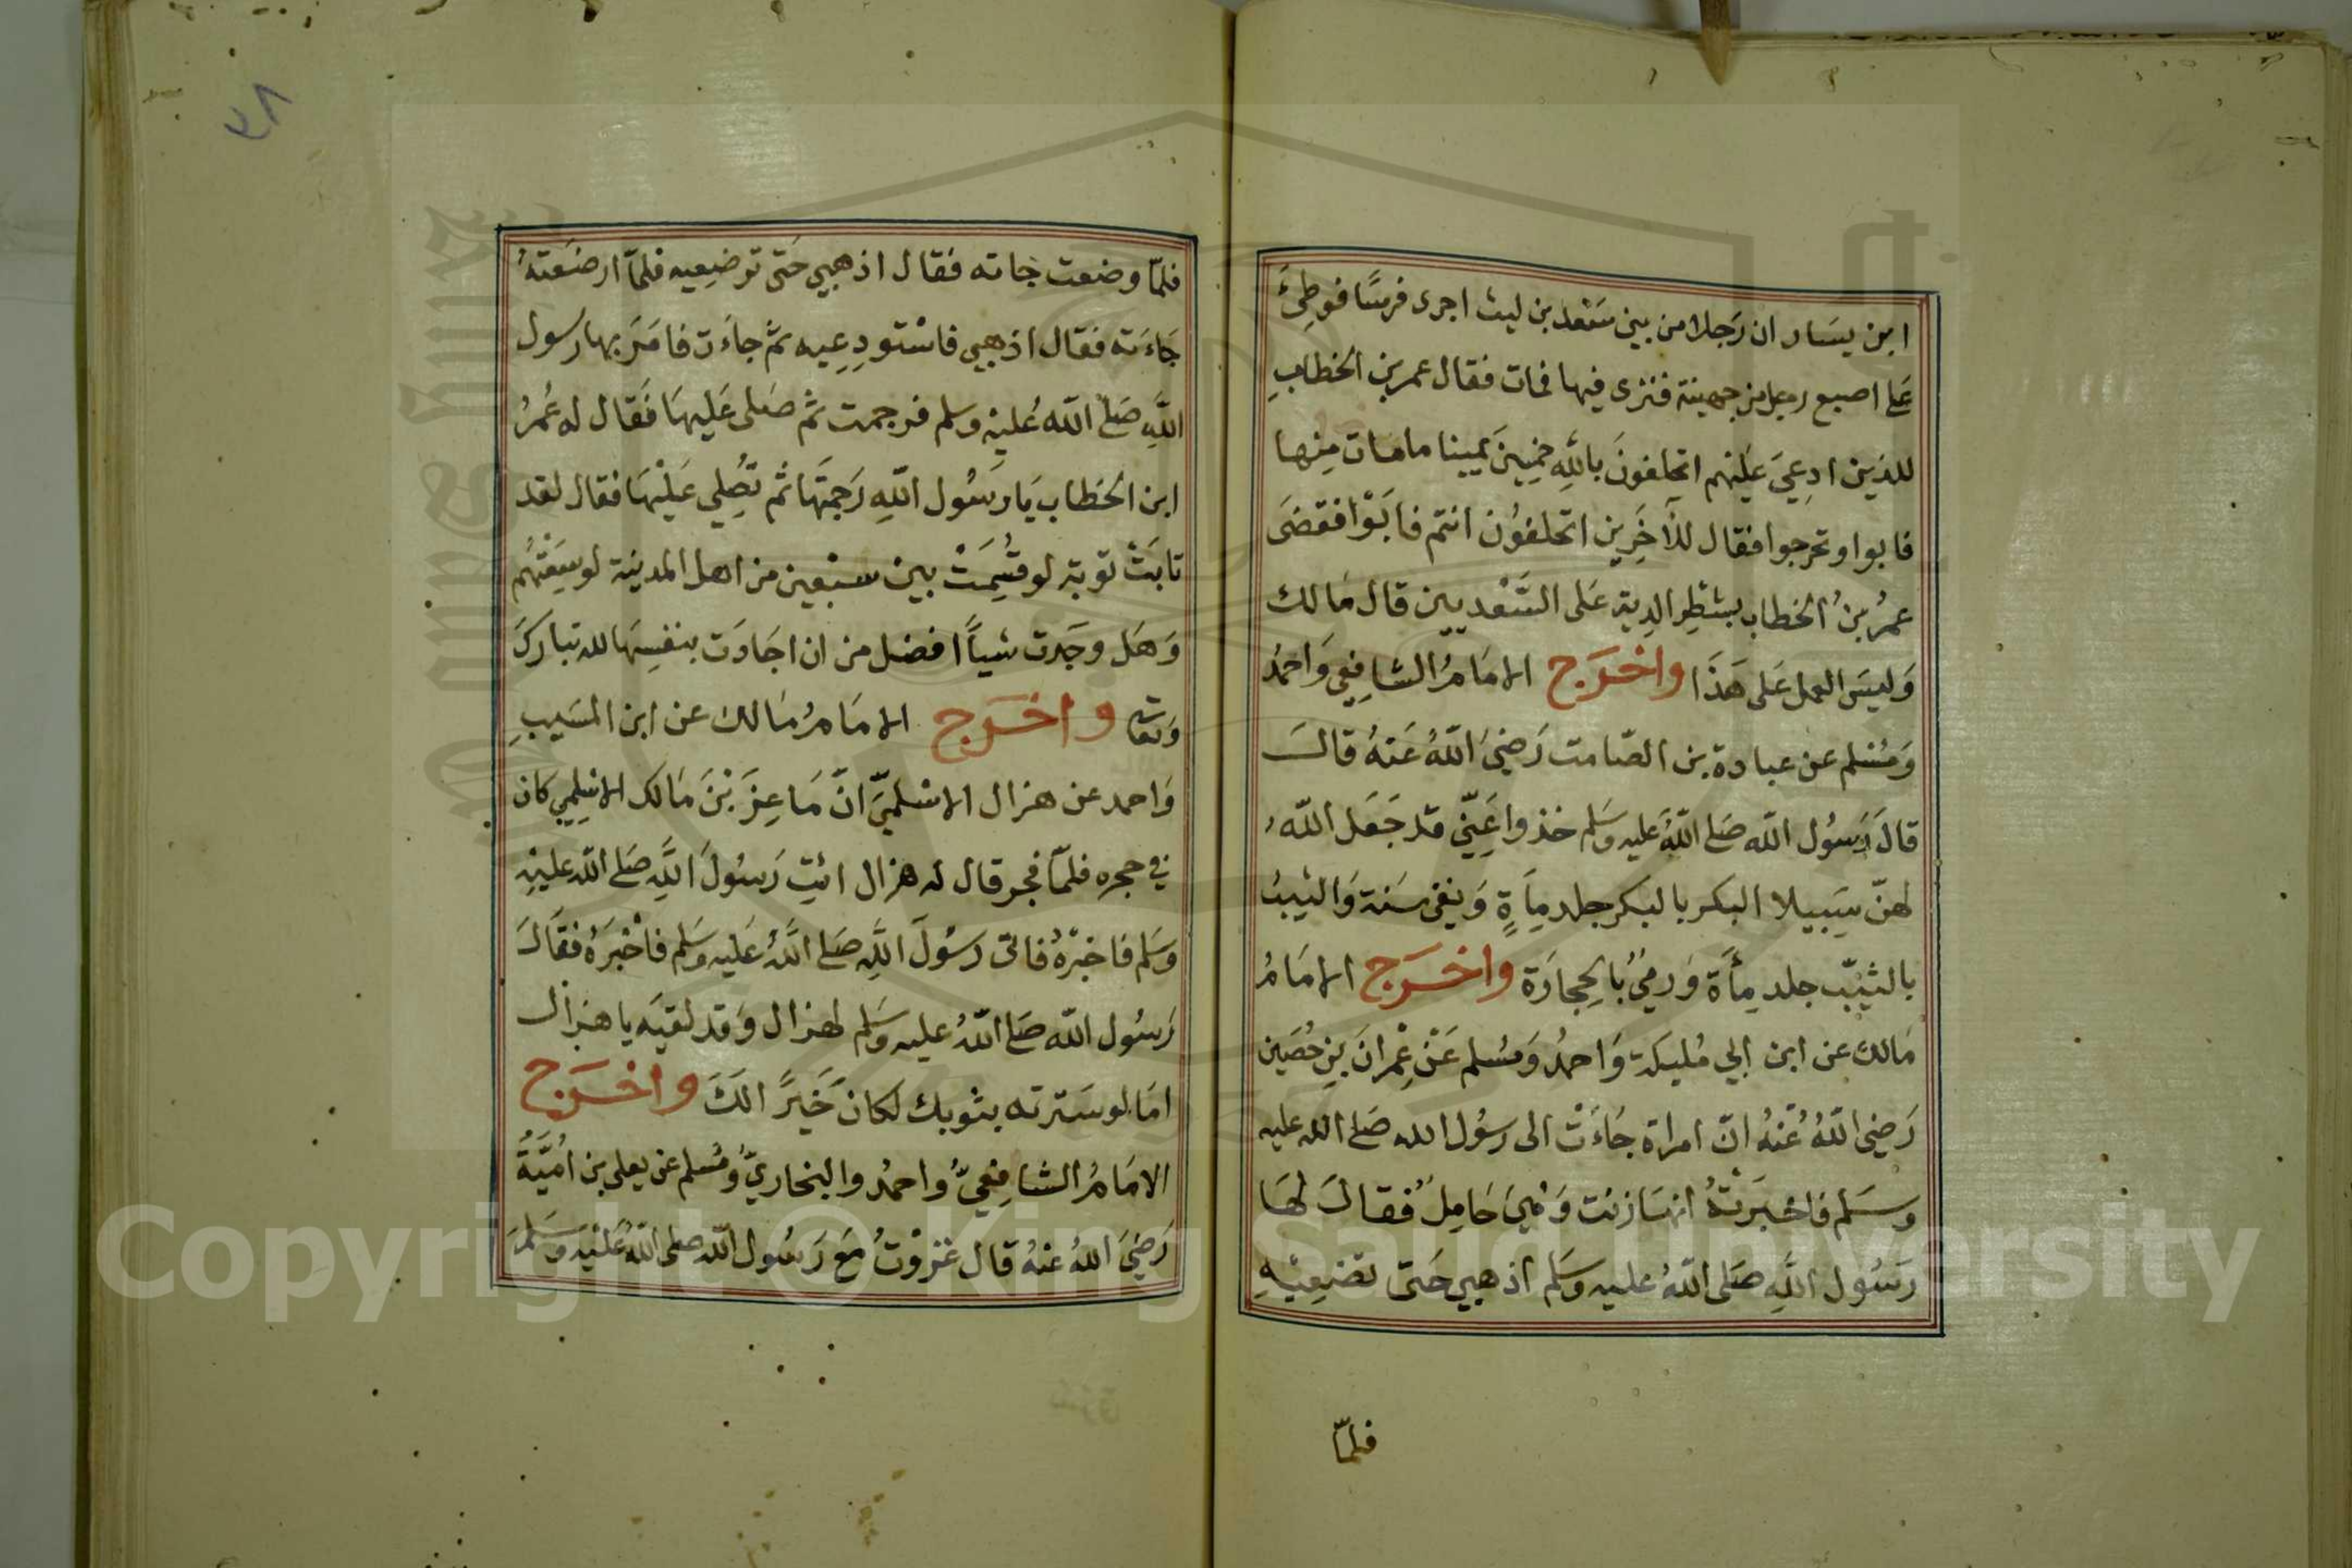 ابن يسار ان رَجلا من بني سَعْد بن ليث اجرى فرسًا فوطِئَ
عَلى اصبع رجل من جهينة فنزى فيها فمات فقال عمر بن الخطابِ
للذين ادعِيَ عَليْهم اتحلفونَ باللهِ خمسِينَ يَمينا مامات مِنها
فابوا وتحرجوا فقال للآخَرِين اتحلفوُن انتم فابَوْا فقضَى
عمرُ بنُ الخطاب بشطِر الدِية عَلى السَّعْديين قال مَالك
وَليسَ العمل عَلى هَذَا واخرَج الامَامُ الشافِعي وَاحمدُ
وَمُسْلم عن عبادة بن الصّامت رَضِيَ اللهُ عَنهُ قالَ
قالَ رَسُول الله صَلى اللهُ عَليه وسَلم خذوا عَنِّي قد جَعَل اللهُ
لهنّ سَبِيلا البكر بالبكر جلد مِاَةٍ وَنفى سَنة وَالثيبُ
بالثيّب جلد مِأَة وَرميٌ بالحِجارَة واخرَج الامَامُ
مَالك عن ابن ابي مُليكة وَاحمدُ وَمسُلم عَنْ عِمْرانَ بنِ حُصَين
رَضِيَ اللهُ عَنْهُ انّ امراة جَاءَتْ الى رسُول الله صَلى الله عليه
وسَلم فاخبَرَتْهُ انهَا زنت وَهْيَ حَامِلٌ فقالَ لهَا
رَسُول اللهِ صَلى اللهُ عليه وسَلم اذهبي حَتى تضَعِيْهِ
فلمّا
٣٨
فلمّا وضعت جاته فقال اذهبي حَتى ترضِعِيه فلمّا ارضَعتهُ
جَاءَته فقال اذهبي فاسْتودِعِيه ثم جاءَت فامَرَ بها رسول
اللهِ صَلى اللهُ عَليْهِ وسلم فرجمت ثم صَلى عَليهَا فَقال له عُمرُ
ابن الخطاب يَا رَسُول اللهِ رَجمتَهَا ثم تُصَلِي عَليْهَا فقال لقد
تابَتْ توبة لو قُسِمَتْ بين سبْعين من اهل المدينة لوسِعَتْهُم
وَهَل وجَدت شيأً افضل من ان اجَادَت بنفسِهَا لله تباركَ
وَتعَالى واخرَج الامَامُ مَالك عن ابن المسَيبِ
وَاحمد عن هزال الاسْلميّ انّ مَاعِزَ بْنَ مَالك الاسْلِميِ كان
في حجره فلمّا فجر قال له هزال ائتِ رَسُولَ اللهِ صَلى الله عليْهِ
وسَلم فاخبْرهُ فاتى رسُولَ اللهِ صَلى اللهُ عَليه وسَلم فاخْبَرَهُ فقَالَ
رَسُول الله صَلى اللهُ عليه وسَلم لهزال وَقد لقيَه يا هزال
امَا لو سَترته بثوبك لكانَ خَيرًا لكَ واخرَج
الامَامُ الشافِعيُّ وَاحمدُ والبخاريُّ وَمسُلم عن يعلى بن اُمَيَّةَ
رَضِيَ اللهُ عَنْهُ قال غزوْتُ مَعَ رَسُول اللهِ صَلى اللهُ عَليْه وَسَلمَ
Copyright © King Saud University